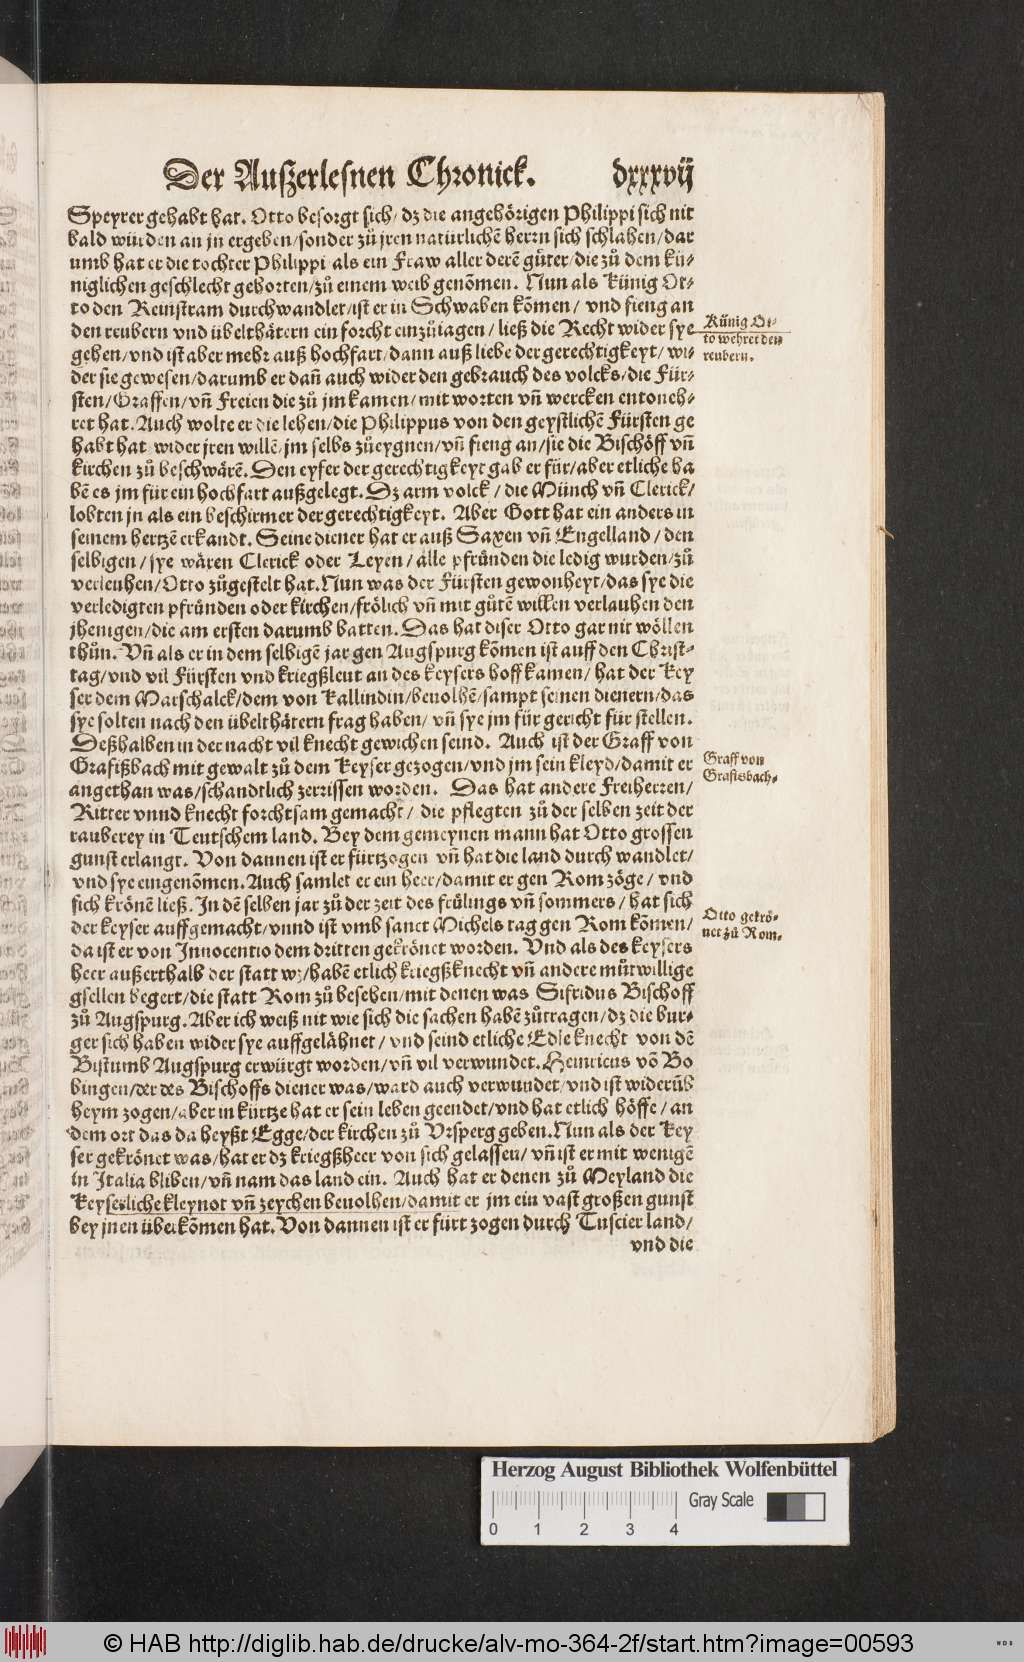 Der Außerlesnen Chronick. dxxxvij
Speyrer gehabt hat. Otto besorgt sich/ dz die angehörigen Philippi sich nit
bald würden an jn ergeben/sonder zů jren natürlichē herrn sich schlahen/dar
umb hat er die tochter Philippi als ein Fraw aller derē gůter/die zů dem kü-
niglichen geschlecht gehorten/zů einem weib genōmen. Nun als Künig Ot-
to den Reinstram durchwandlet/ist er in Schwaben kōmen/ vnd fieng an
den reubern vnd übelthätern ein forcht einzůiagen/ ließ die Recht wider sye
gehen/vnd ist aber mehr auß hochfart/dann auß liebe der gerechtigkeyt/ wi-
der sie gewesen/darumb er dañ auch wider den gebrauch des volcks/die Für-
sten/Graffen/vñ Freien die zů jm kamen/mit worten vñ wercken entoneh-
ret hat. Auch wolte er die lehen/die Philippus von den geystlichē Fürsten ge
habt hat wider jren willē jm selbs zůeygnen/vñ fieng an/sie die Bischöff vñ
kirchen zů beschwärē. Den eyfer der gerechtigkeyt gab er für/aber etliche ha
bē es jm für ein hochfart außgelegt. Dz arm volck/ die Münch vñ Clerick/
lobten jn als ein beschirmer der gerechtigkeyt. Aber Gott hat ein anders in
seinem hertzē erkandt. Seine diener hat er auß Saxen vñ Engelland/ den
selbigen/ sye wären Clerick oder Leyen/ alle pfründen die ledig wurden/zů
verleuhen/Otto zůgestelt hat. Nun was der Fürsten gewonheyt/das sye die
verledigten pfründen oder kirchen/frölich vñ mit gůtē willen verlauhen den
jhenigen/die am ersten darumb batten. Das hat diser Otto gar nit wöllen
thůn. Vñ als er in dem selbigē jar gen Augspurg kōmen ist auff den Christ-
tag/vnd vil Fürsten vnd kriegßleut an des keysers hoff kamen/ hat der Key
ser dem Marschalck/dem von Kallindin/beuolhē/sampt seinen dienern/das
sye solten nach den übelthätern frag haben/ vñ sye jm für gericht für stellen.
Deßhalben in der nacht vil knecht gewichen seind. Auch ist der Graff von
Grafißbach mit gewalt zů dem Keyser gezogen/vnd jm sein kleyd/damit er
angethan was/schandtlich zerrissen worden. Das hat andere Freiherren/
Ritter vnnd knecht forchtsam gemacht/ die pflegten zů der selben zeit der
rauberey in Teutschem land. Bey dem gemeynen mann hat Otto grossen
gunst erlangt. Von dannen ist er fürtzogen vñ hat die land durch wandlet/
vnd sye eingenōmen. Auch samlet er ein heer/damit er gen Rom zöge/ vnd
sich krönē ließ. In dē selben jar zů der zeit des frülings vñ sommers/ hat sich
der keyser auffgemacht/vnnd ist vmb sanct Michels tag gen Rom kōmen/
da ist er von Innocentio dem dritten gekrönet worden. Vnd als des keysers
heer außerthalb der statt wz/habē etlich kriegßknecht vñ andere můtwillige
gsellen begert/die statt Rom zů besehen/mit denen was Sifridus Bischoff
zů Augspurg. Aber ich weiß nit wie sich die sachen habē zůtragen/dz die bur-
ger sich haben wider sye auffgelähnet/ vnd seind etliche Edle knecht von dē
Bistumb Augspurg erwürgt worden/vñ vil verwundet. Heinricus vō Bo
bingen/der des Bischoffs diener was/ward auch verwundet/vnd ist widerüb
heym zogen/aber in kürtze hat er sein leben geendet/vnd hat etlich höffe/ an
dem ort das da heyßt Egge/der kirchen zů Vrsperg geben. Nun als der Key
ser gekrönet was/hat er dz kriegßheer von sich gelassen/ vñ ist er mit wenigē
in Italia bliben/vñ nam das land ein. Auch hat er denen zů Meyland die
Keyserliche kleynot vñ zeychen beuolhen/damit er jm ein vast großen gunst
bey jnen überkōmen hat. Von dannen ist er fürt zogen durch Tuscier land/
vnd die
Künig Ot-
to wehret den
reubern.
Graff von
Grafisbach.
Otto gekrö-
net zů Rom.
Herzog August Bibliothek Wolfenbüttel
0 1 2 3 4 Gray Scale
© HAB http://diglib.hab.de/drucke/alv-mo-364-2f/start.htm?image=00593